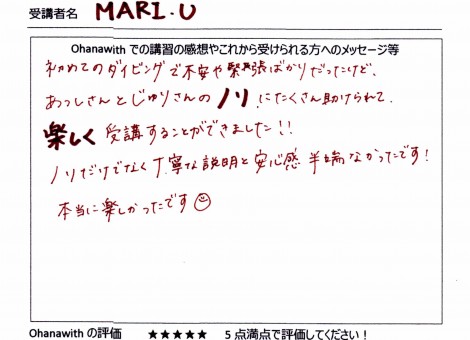 受講者名 MARI.U
Ohanawith での講習の感想やこれから受けられる方へのメッセージ等
初めてのダイビングで不安や緊張ばかりだったけど、
あっしさんとじゅりさんのノリにたくさん助けられて、
楽しく受講することができました!!
ノリだけでなく丁寧な説明と安心感半端なかったです!
本当に楽しかったです
Ohanawith の評価 ★★★★★ 5点満点で評価してください!